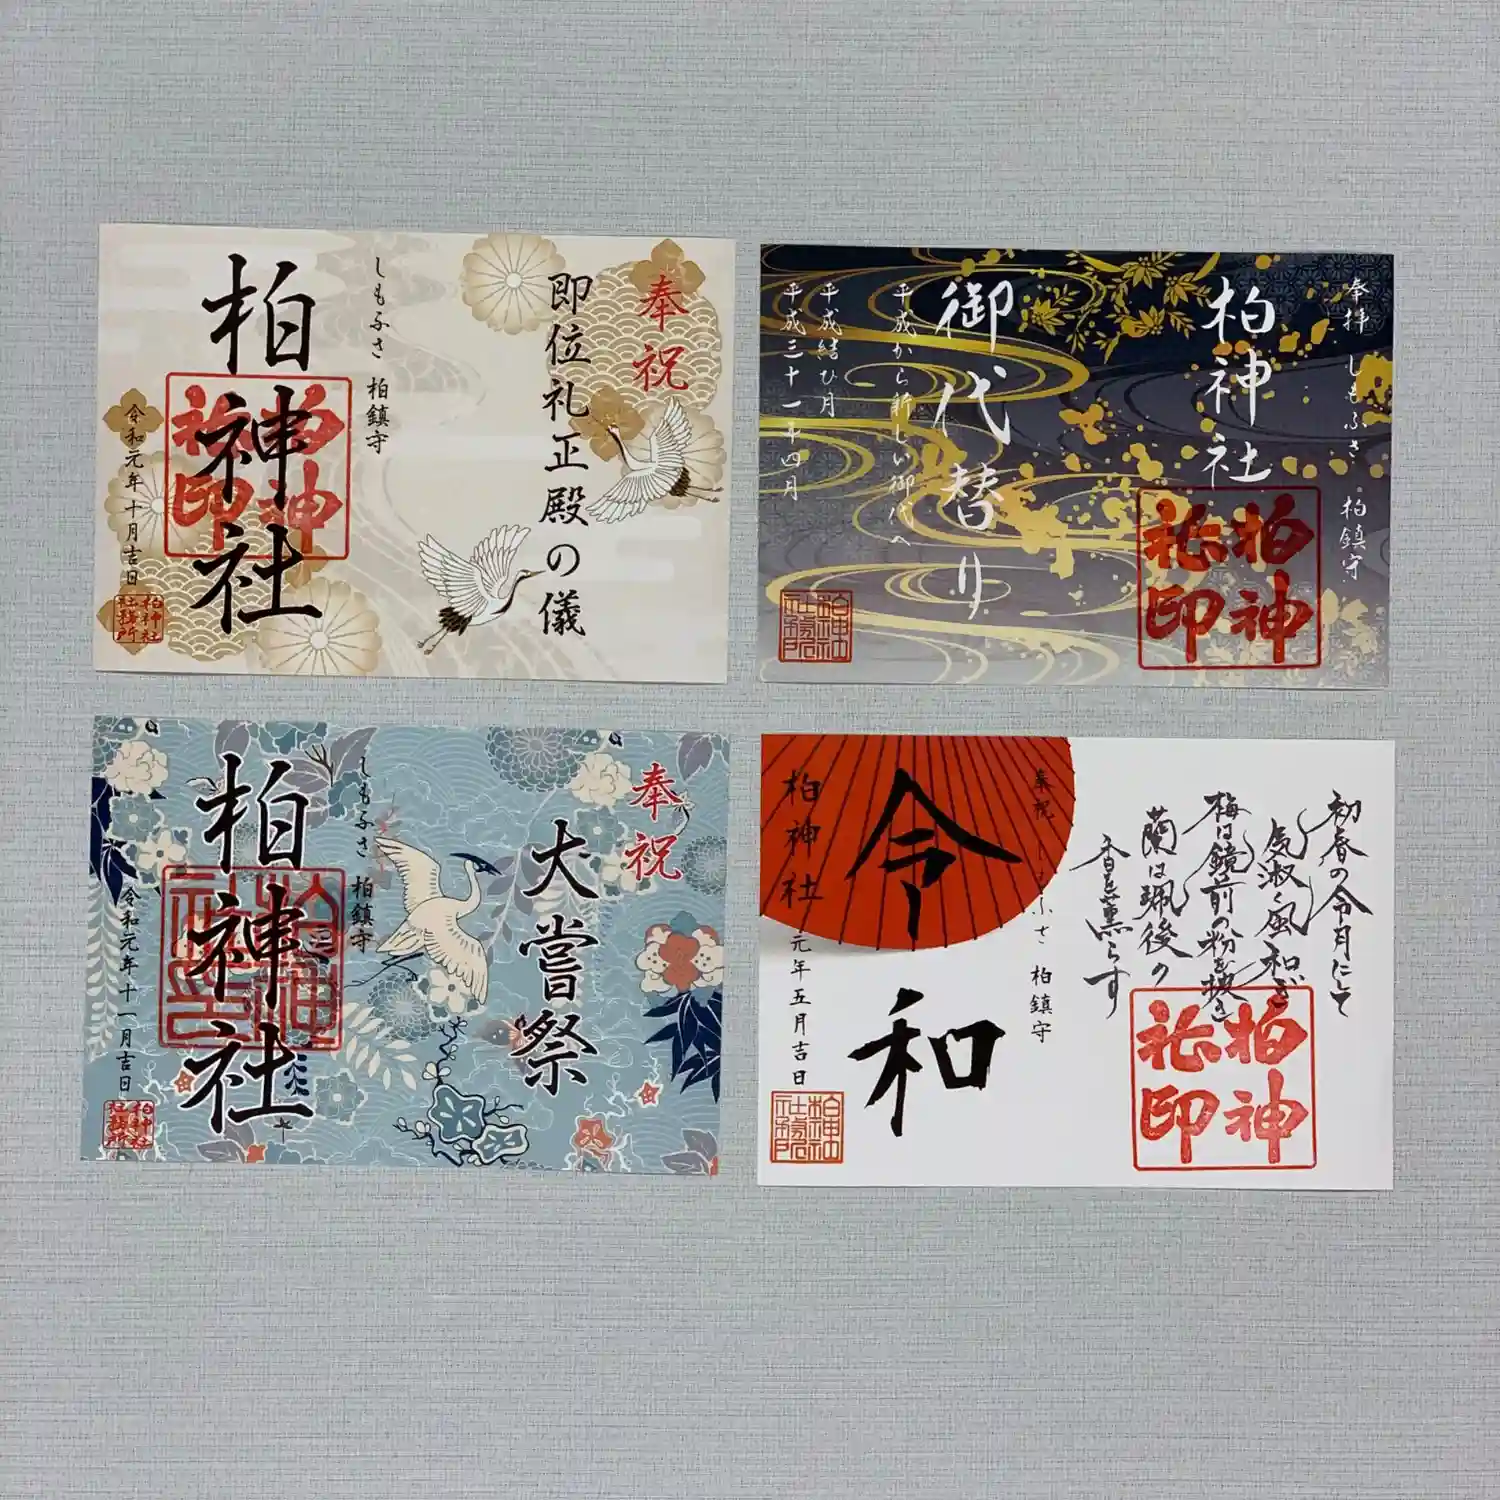 奉祝
即位礼正殿の儀
しもふさ 柏鎮守
柏神社
柏神社印
令和元年十月吉日
柏神社社務所
奉拝 しもふさ 柏鎮守
柏神社
柏神社印
御代替り
平成から新しい御代へ
平成結び月
平成三十一年四月
柏神社社務所
奉祝
大嘗祭
しもふさ 柏鎮守
柏神社
柏神社印
令和元年十一月吉日
柏神社社務所
初春の令月にして
気淑く風和ぎ
梅は鏡前の粉を披き
蘭は珮後の
香を薫らす
柏神社印
奉祝 しもふさ 柏鎮守
令和
柏神社
元年五月吉日
柏神社社務所